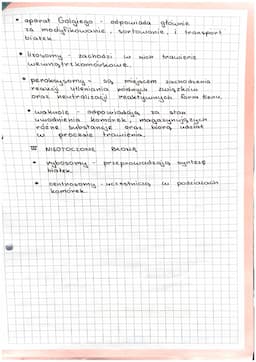 • aparat Golgiego - odpowiada głównie
za modyfikowanie, sortowanie, i transport
białek.
• lizosomy - zachodzi w nich trawienie
wewnątrzkomórkowe.
• peroksysomy - są miejscem zachodzenia
reakcji utleniania różnych związków
oraz neutralizacji reaktywnych form tlenu.
• wakuole - odpowiadają za stan
uwodnienia komórek, magazynujących
różne substancje oraz biorą udział
w procesie trawienia.
NIEOTOCZONE BŁONĄ
• rybosomy - przeprowadzają syntezę
białek.
• centrosomy - uczestniczą w podziałach
komórek.